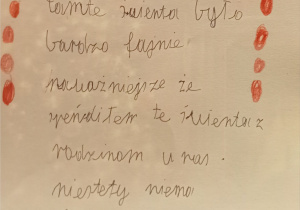 tamte świenta było
bardzo fajnie.
naważniejsze że
spendiłem te świenta z
rodzinom u nas.
niestety niema